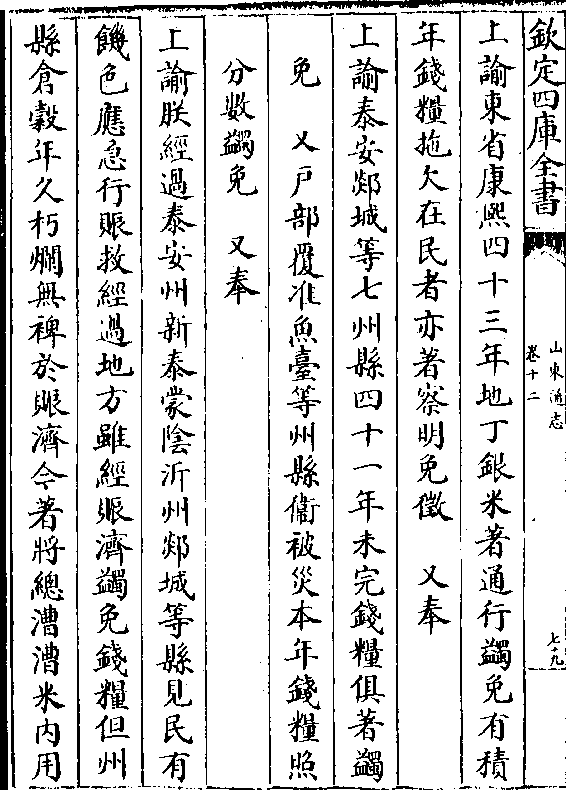 欽定四庫全書
山東通志
卷十二
七十九
上諭東省康熙四十三年地丁銀米著通行蠲免有積
年錢糧拖欠在民者亦著察明免徵　又奉
上諭泰安郯城等七州縣四十一年未完錢糧俱著蠲
免　又戶部覆准魚臺等州縣衞被災本年錢糧照
分數蠲免　又奉
上諭朕經過泰安州新泰蒙陰沂州郯城等縣見民有
饑色應急行賑救經過地方雖經賑濟蠲免錢糧但州
縣倉穀年久朽爛無裨於賑濟今著將總漕漕米内用